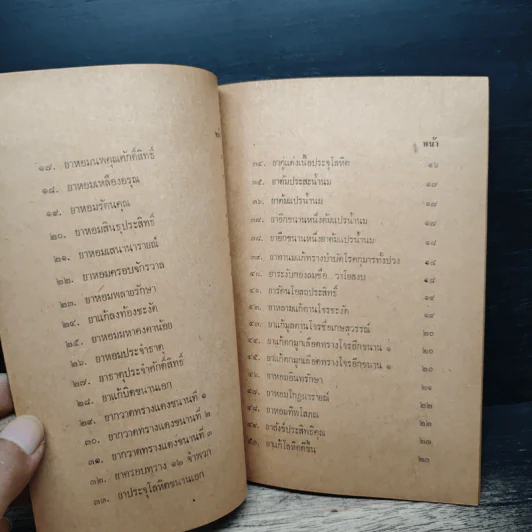 ๑๗. ยาหอมนพคุณศักดิ์สิทธิ์
๑๘. ยาหอมเหลืองอรุณ
๑๙. ยาหอมรัตนคุณ
๒๐. ยาหอมสินธุประสิทธิ์
๒๑. ยาหอมเสนานารายณ์
๒๒. ยาหอมครอบจักรวาล
๒๓. ยาหอมพลายรักษา
๒๔. ยาแก้ลงท้องชะงัด
๒๕. ยาหอมมหาคงคาน้อย
๒๖. ยาหอมประจำธาตุ
๒๗. ยาธาตุประจำศักดิ์สิทธิ์
๒๘. ยาแก้บิดขนานเอก
๒๙. ยากวาดทรางแดงขนานที่ ๑
๓๐. ยากวาดทรางแดงขนานที่ ๒
๓๑. ยากวาดทรางแดงขนานที่ ๓
๓๒. ยาครอบทราง ๑๒ จำพวก
๓๓. ยาประจุโลหิตขนานเอก
หน้า
๓๔. ยาคู่แต่งเนื้อประจุโลหิต ๑๖
๓๕. ยาต้มประสะน้ำนม ๑๗
๓๖. ยาต้มแปรน้ำนม ๑๗
๓๗. ยาอีกขนานหนึ่งต้มแปรน้ำนม ๑๗
๓๘. ยาอีกขนานหนึ่งยาต้มแปรน้ำนม ๑๘
๓๙. ยาตานมแก้ทรางบำบัดโรคกุมารทั้งปวง ๑๘
๔๐. ยาระงับกองลมชื่อ วาโยสงบ ๑๘
๔๑. ยารัตนโอสถประสิทธิ์ ๑๙
๔๒. ยาหลามแก้ตานโจรชะงัด ๑๙
๔๓. ยาแก้มูลตานโจรชื่อเกษสุวรรณ์ ๒๐
๔๔. ยาแก้ตกมูกเลือดทรางโจรอีกขนาน ๑ ๒๐
๔๕. ยาแก้ตกมูกเลือดทรางโจรอีกขนาน ๑ ๒๐
๔๖. ยาหอมอินทรักษา ๒๑
๔๗. ยาหอมไกฎนารายณ์ ๒๒
๔๘. ยาหอมทิพโสภณ ๒๒
๔๙. ยาสังข์ประสิทธิคุณ ๒๒
๕๐. ยาแก้โลหิตตีขึ้น ๒๓